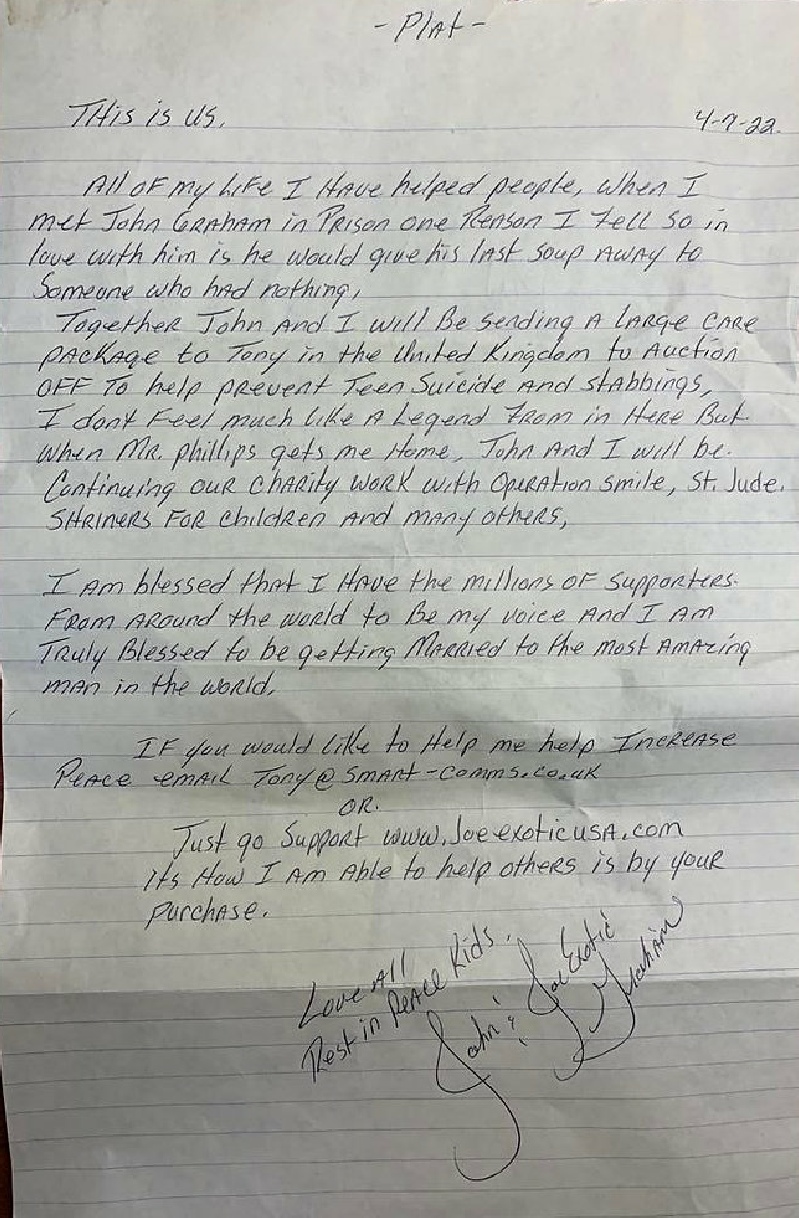 - Plat -
THis is us.
4-7-22.
All of my Life I Have helped people, when I
met John Graham in Prison one Reason I fell so in
love with him is he would give his last soup away to
Someone who had nothing,
Together John and I will Be sending A Large care
package to Tony in the United Kingdom to Auction
off To help prevent Teen Suicide and stabbings,
I dont Feel much like A Legend From in Here But
when Mr. Phillips gets me Home, John And I will be.
Continuing our charity work with Operation Smile, St. Jude.
SHriners For children and many others,
I am blessed that I Have the millions of Supporters.
From around the world to Be my voice And I Am
Truly Blessed to be getting Married to the most Amazing
man in the world.
If you would like to Help me help Increase
Peace email Tony@smart-comms.co.uk
OR.
Just go Support www.Joeexoticusa.com
Its How I Am Able to help others is by your
purchase.
Love All
Rest in Peace Kids.
John & Joe Exotic
Graham